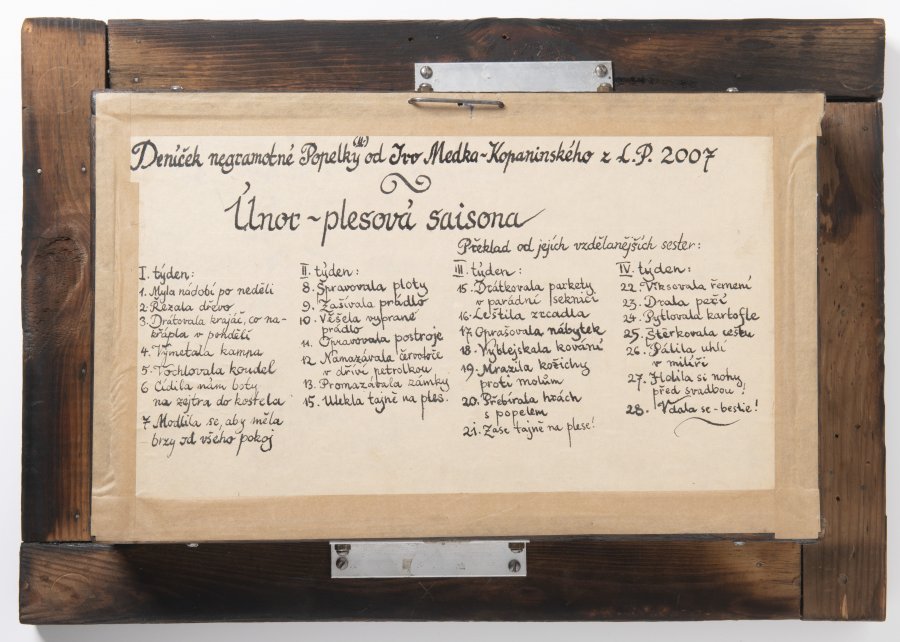 Deníček negramotné Popelky (II.) od Ivo Medka-Kopaninského z L.P. 2007
Únor - plesová saisona
Překlad od jejích vzdělanějších sester:
I. týden:
1. Myla nádobí po neděli
2. Řezala dřevo
3. Drátovala krajáč, co na-
křápla v pondělí
4. Vymetala kampa
5. Tochlovala koudel
6 Cídila nám boty
na zejtra do kostela
7 Modlila se, aby měla
brzy od všeho pokoj
II. týden:
8. Spravovala ploty
9. Zašívala prádlo
10. Věšela vyprané
prádlo
11. Opravovala postroje
12. Namazávala červotoče
v dříví petrolkou
13. Promazábala zámky
15. Utekla tajně na ples.
III. týden:
15. Drátkovala parkety
v parádní seknici
16. Leštila zrcadla
17. Oprašovala nábytek
18. Vyblejskala kování
19. Mrazila kožichy
proti molům
20. Přebírala hrách
s popelem
21. Zase tajně na plese!
IV. týden:
22. Viksovala řemení
23. Drala peří
24. Pytlovala kartofle
25. Štěrkovala cestu
26. Pálila uhlí
v milíři
27. Holila si nohy
před svadbou!
28. Vdala se - bestie!